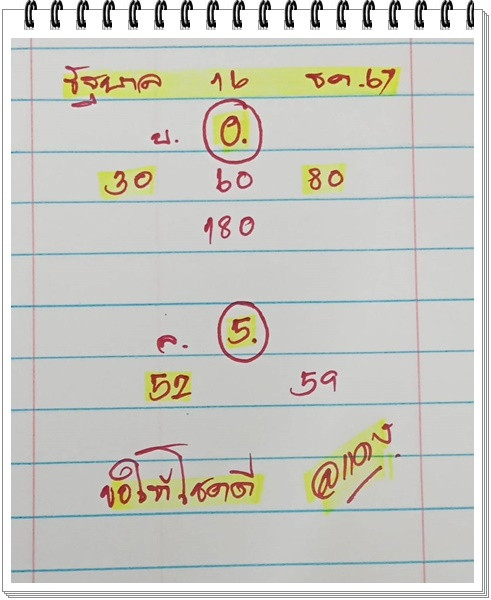 รัฐบาล 16 ธค.67
บ. 0.
30 60 80
180
ล. 5.
52 59
ขอให้โชคดี @แดง